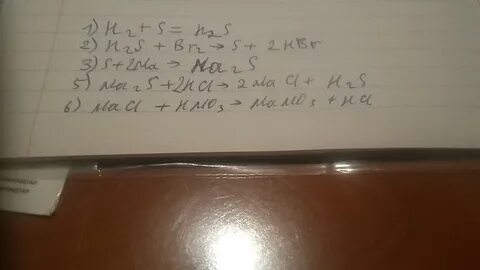 1) H2 + S = H2S
2) H2S + Br2 → S + 2HBr
3) S + 2Na → Na2S
5) Na2S + 2HCl → 2NaCl + H2S
6) NaCl + HNO3 → NaNO3 + HCl